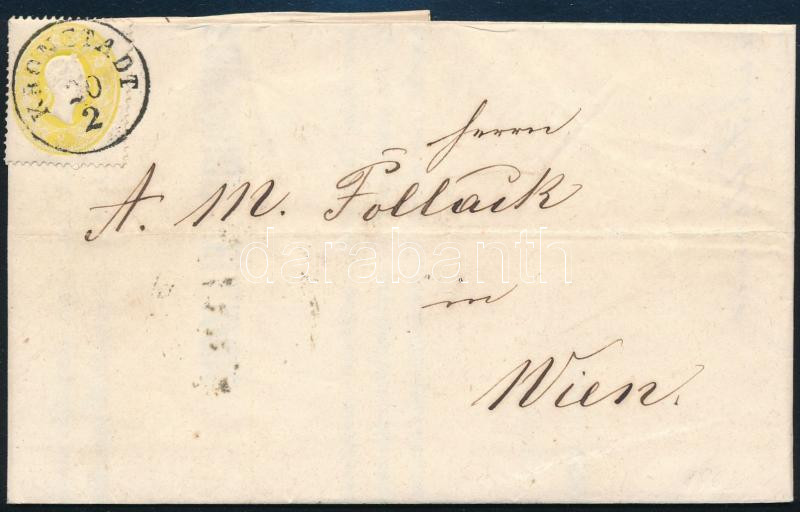 KRONSTADT
20
2
Herrn
A. M. Pollack
in
Wien.
darabanth